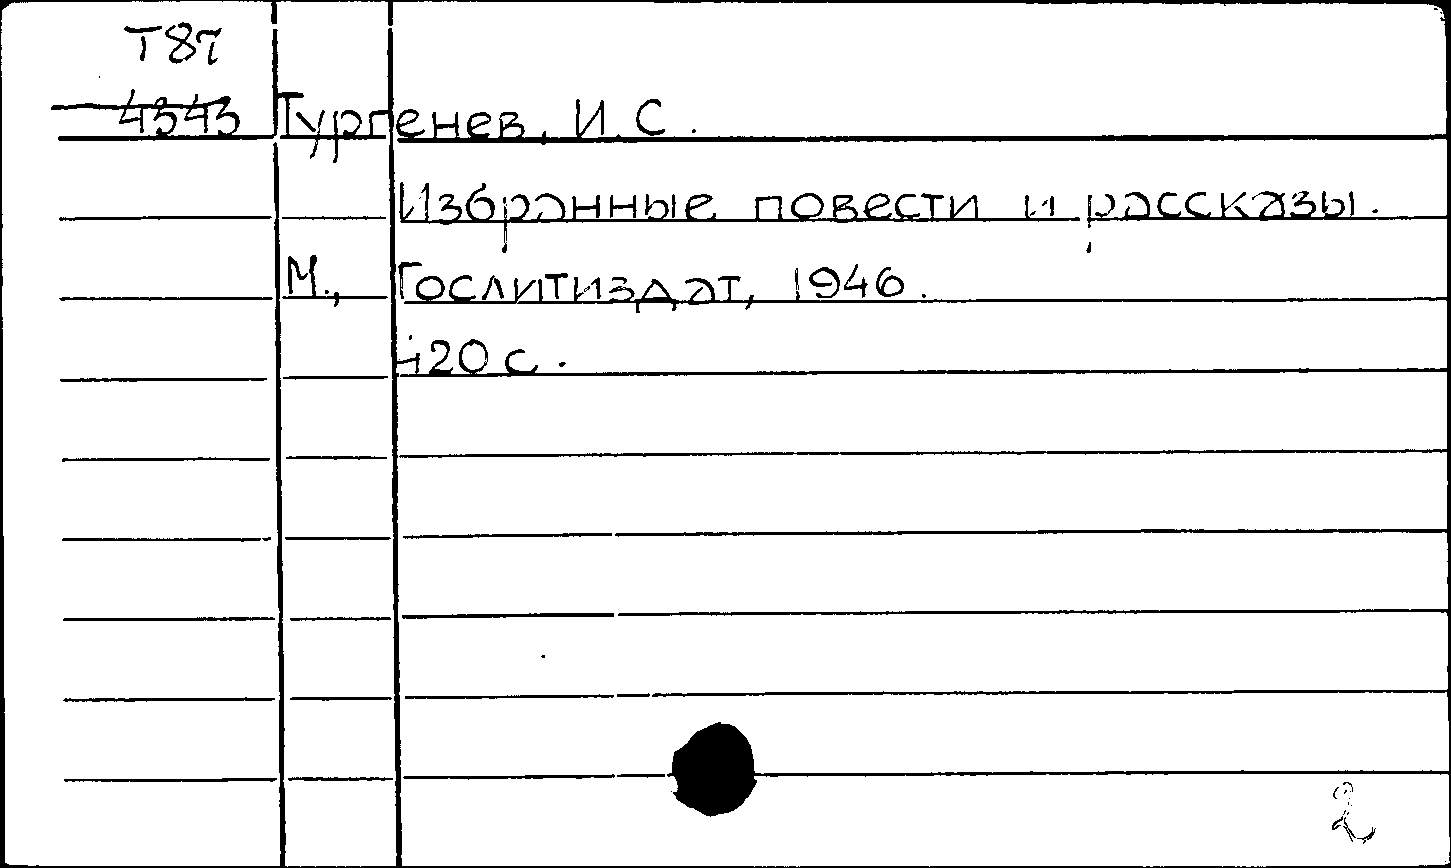 Т87
4343 Тургенев, И.С.
Избранные повести и рассказы.
М., Гослитиздат, 1946.
420 с.
2